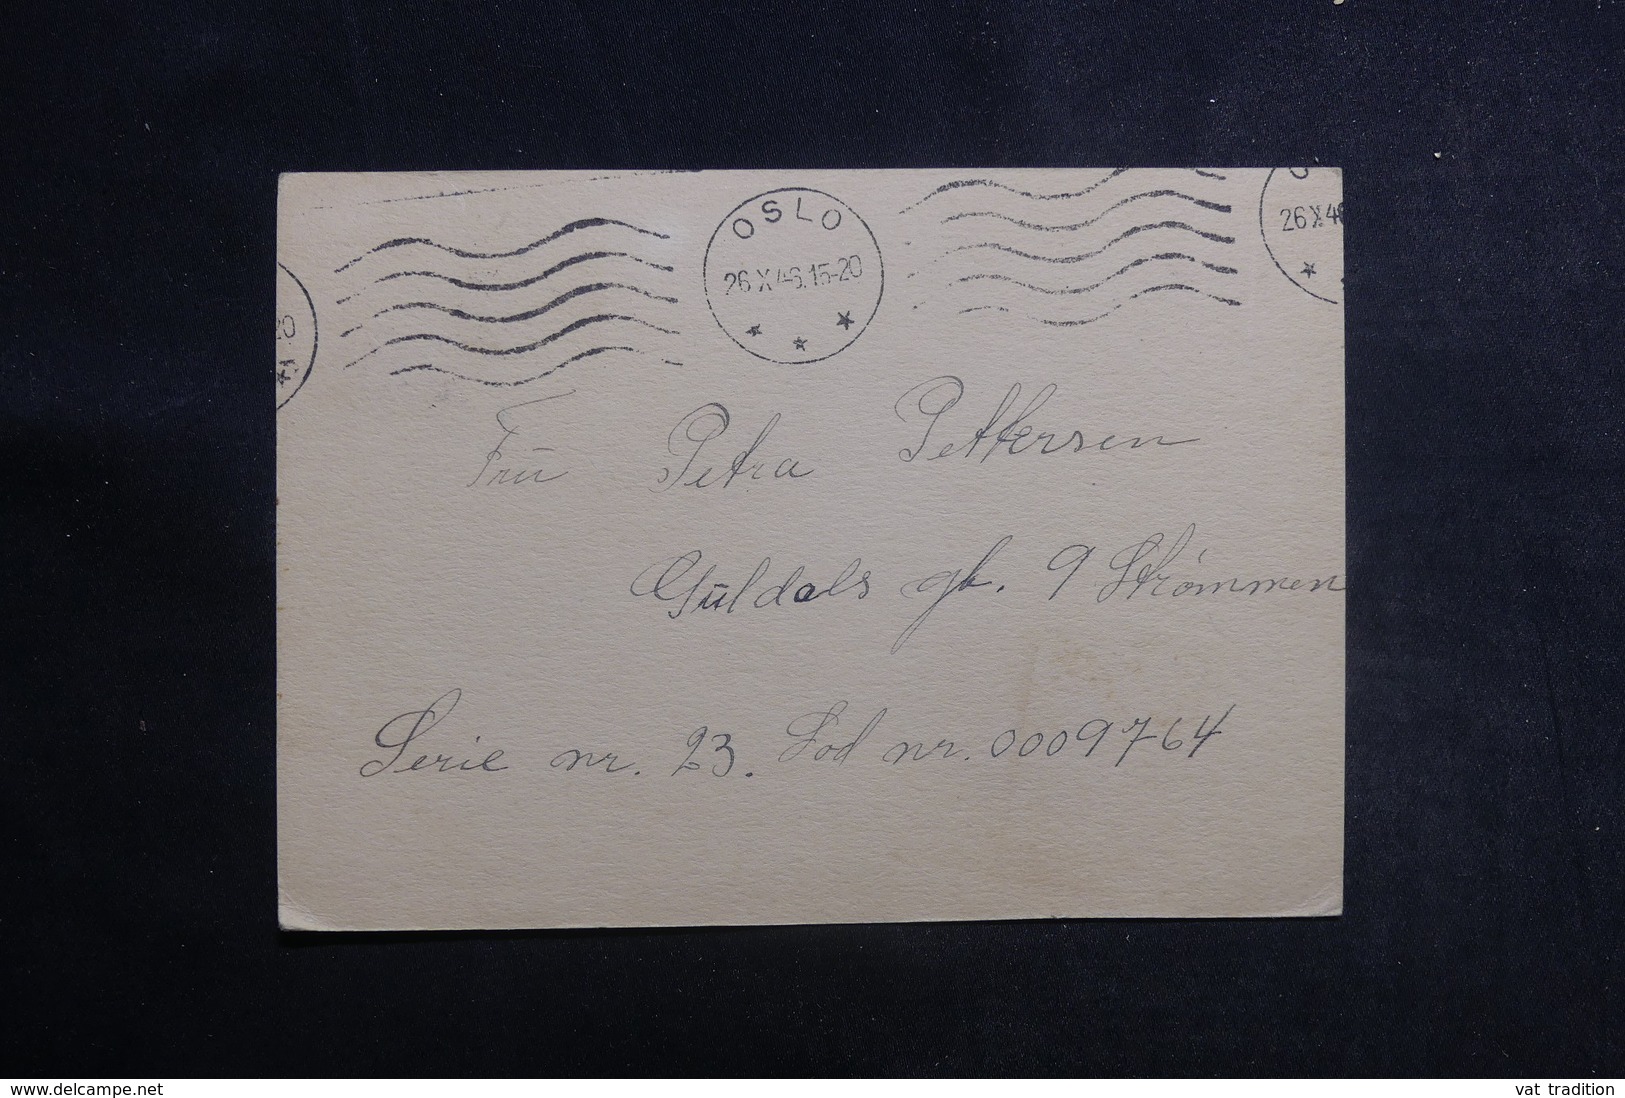 OSLO
26 X 46.15-20
26 X 46
20
Frū Petra Pettersen
Gūldals gt. 9 Strømmen
Serie nr. 23. Lod nr. 0009764
www.delcampe.net
vat tradition